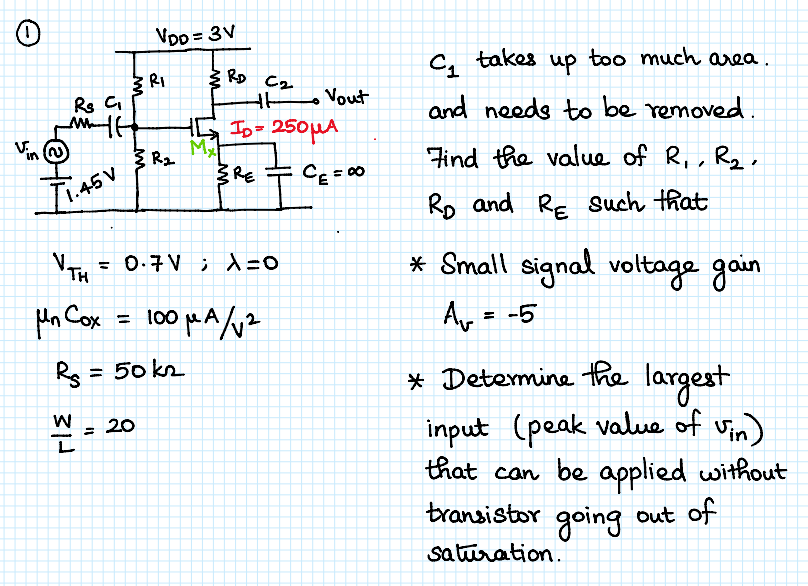 ①
VDD = 3V
R1
RD
C2
Vout
RS
C1
ID = 250μA
Vin
Mx
R2
RE
CE = ∞
1.45V
VTH = 0.7V ; λ=0
μn Cox = 100 μA/V²
RS = 50 kΩ
W/L = 20
C1 takes up too much area.
and needs to be removed.
Find the value of R1, R2,
RD and RE such that
* Small signal voltage gain
Av = -5
* Determine the largest
input (peak value of vin)
that can be applied without
transistor going out of
saturation.